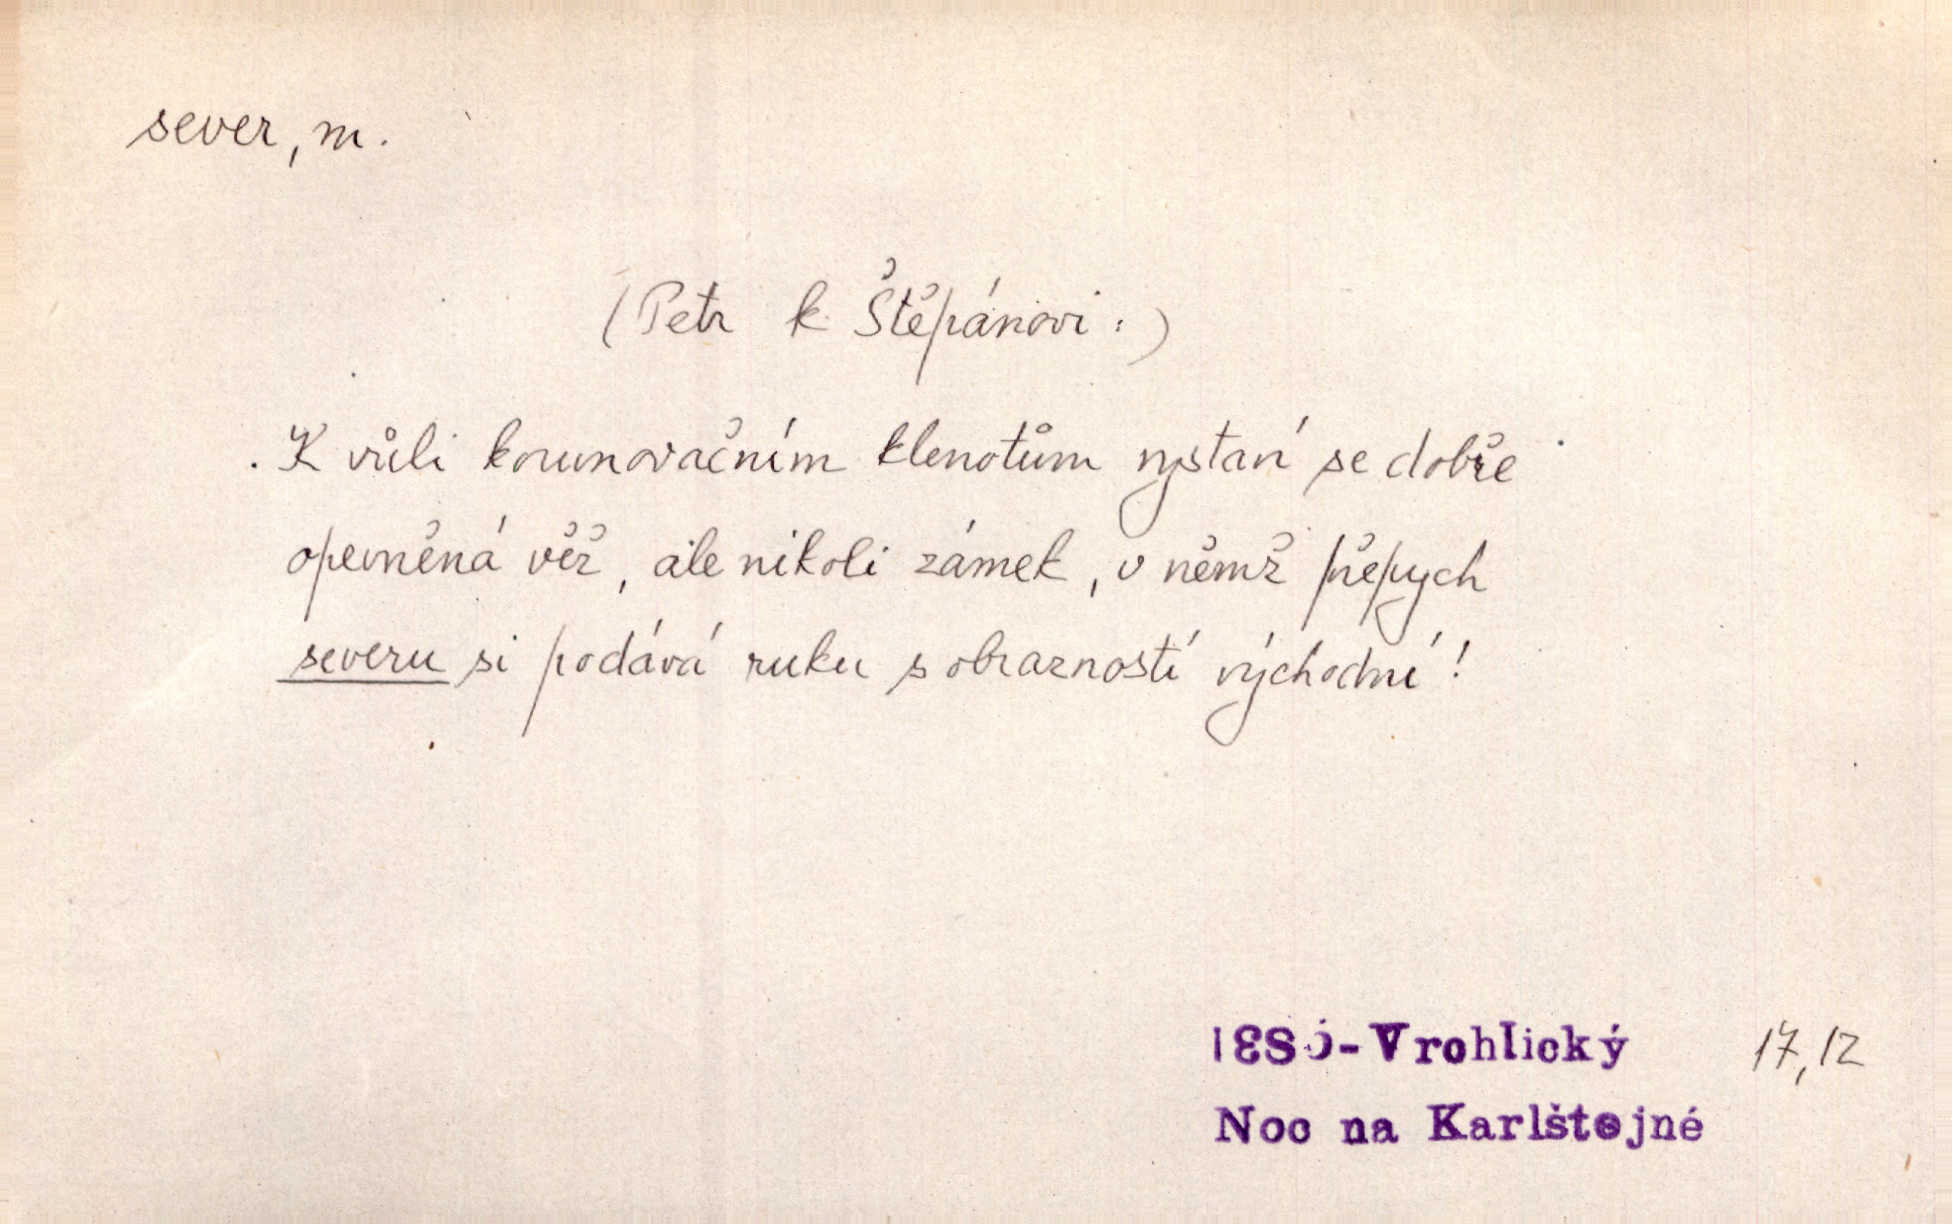 sever, m.
(Petr k Štěpánovi:)
K vůli korunovačním klenotům vystaví se dobře
opevněná věž, ale nikoli zámek, v němž přepych
severu si podává ruku s obrazností východní!
-Vrchlický 17,12
Noc na Karlštejně